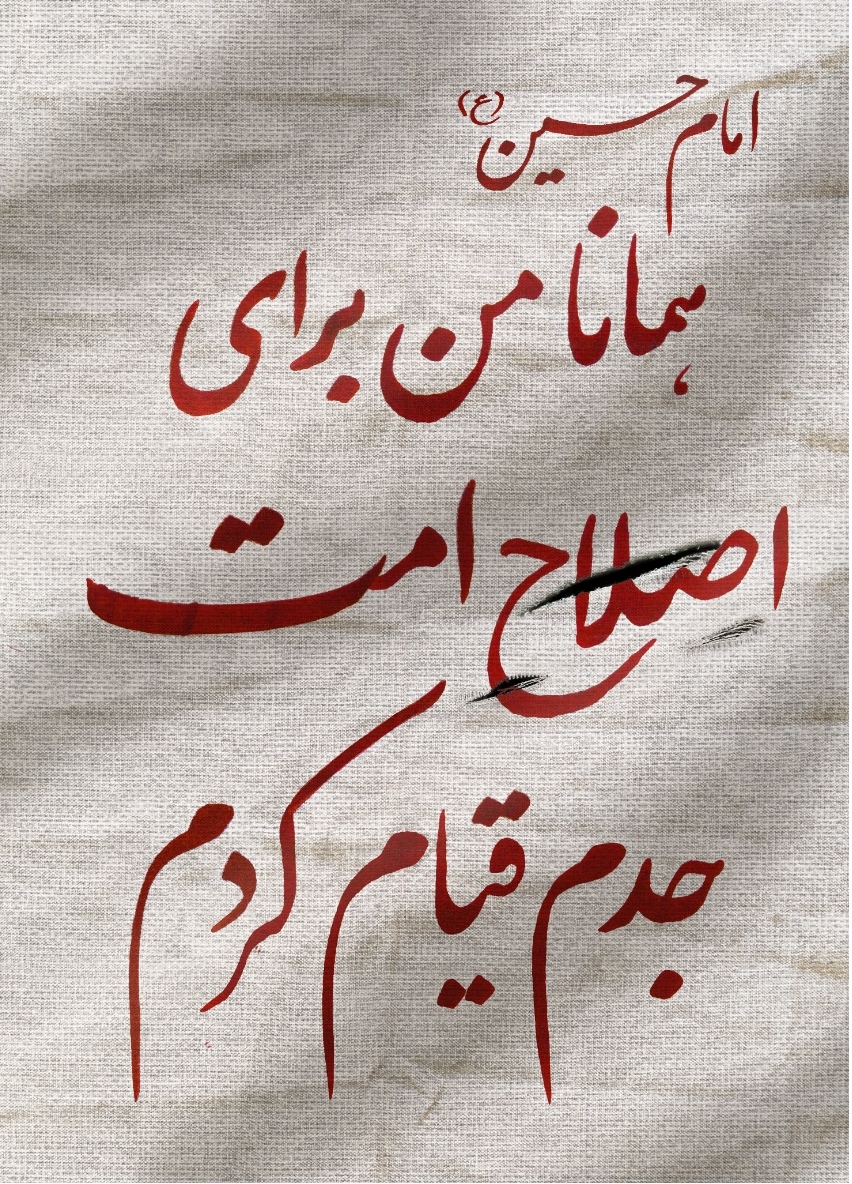 امام حسین (ع)
همانا من برای
اصلاح امت
جدم قیام کردم